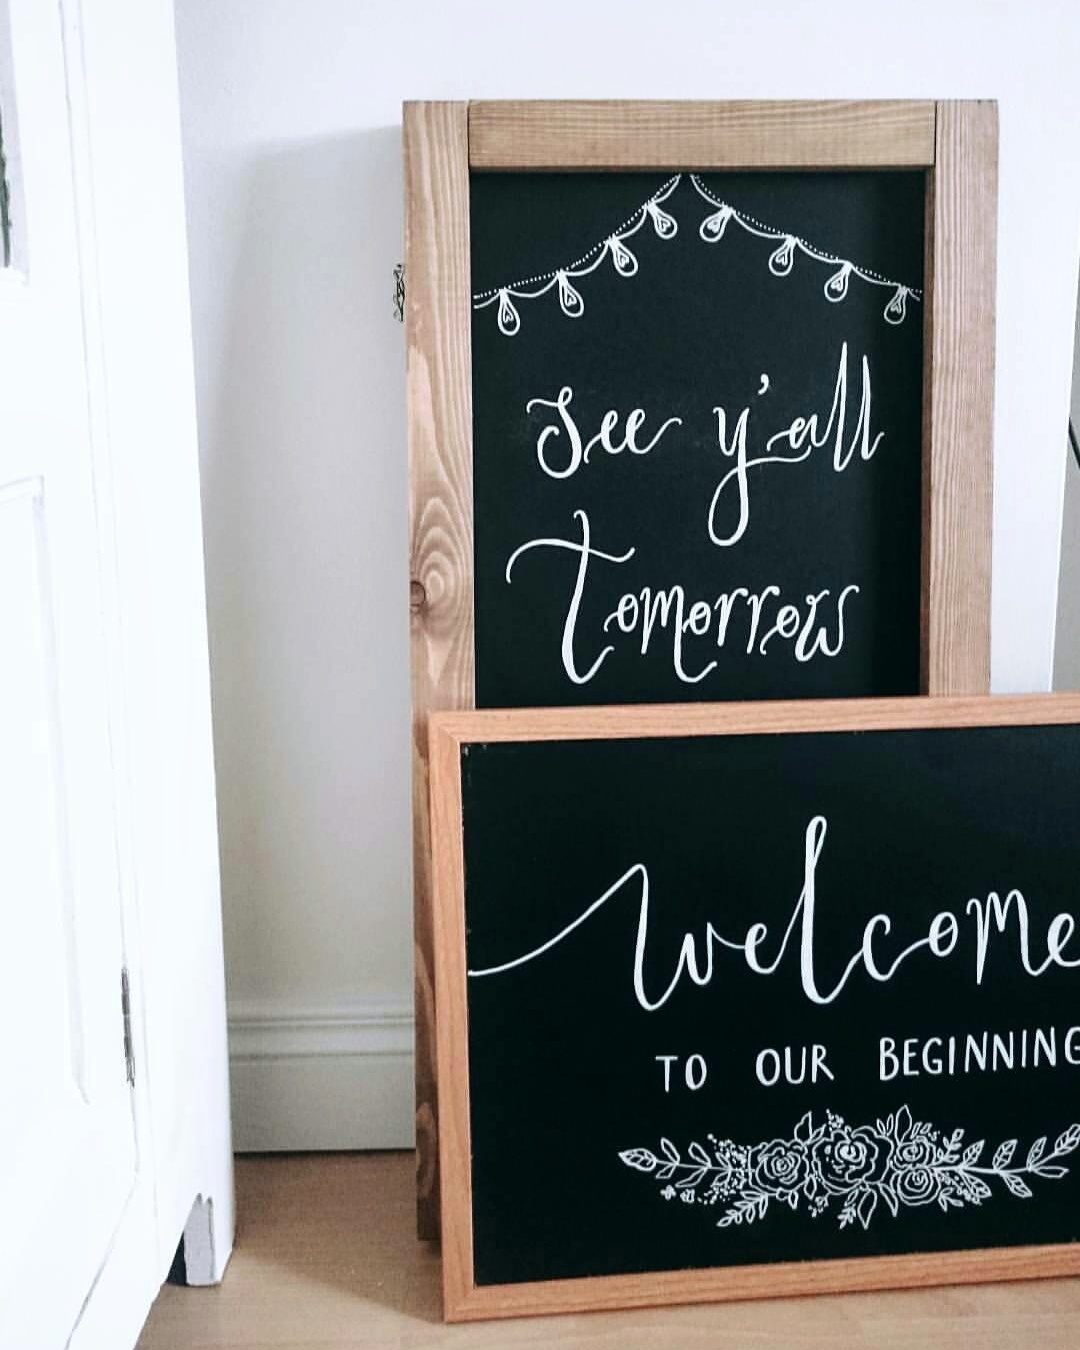 See y'all
Tomorrow
Welcome
TO OUR BEGINNING